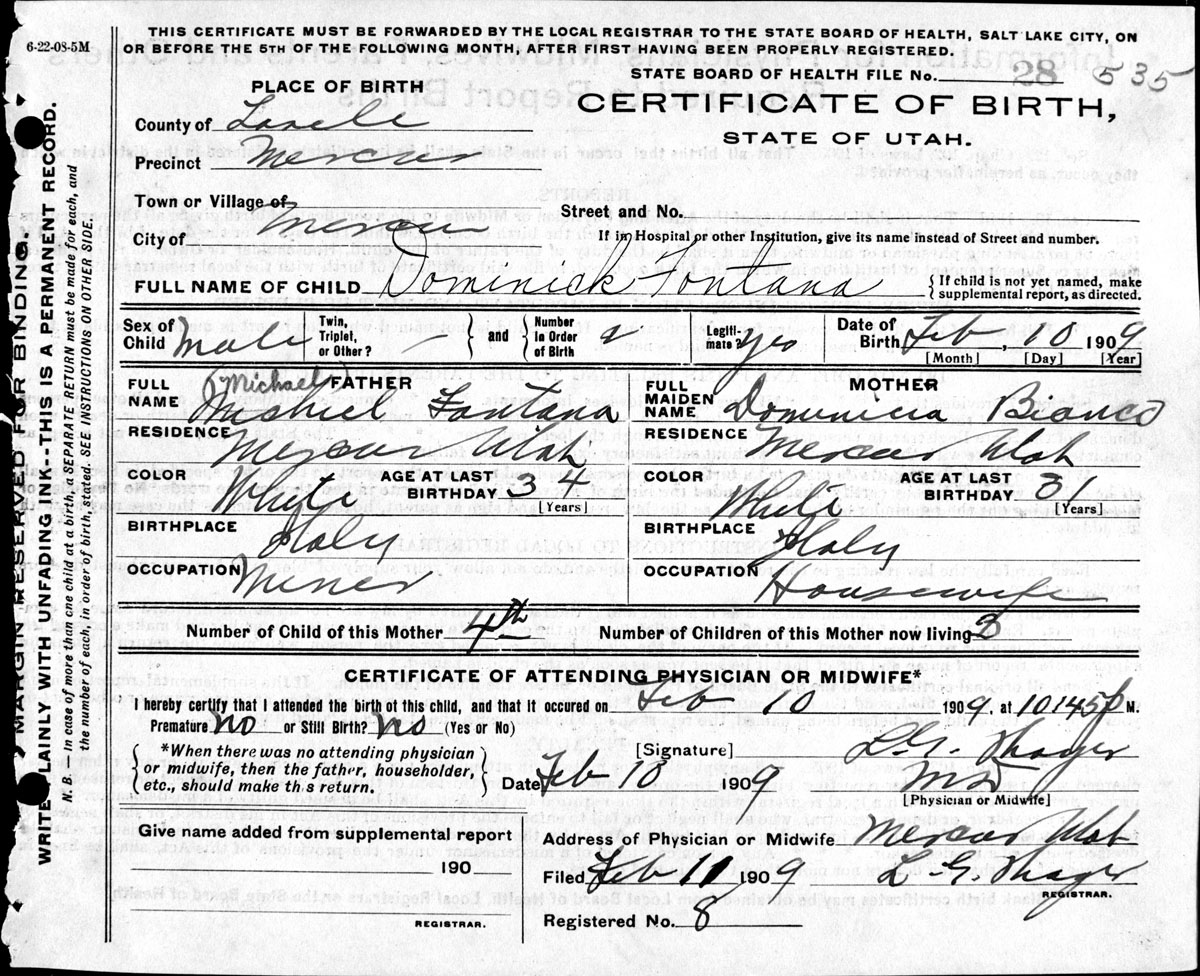 6-22-08-5M
THIS CERTIFICATE MUST BE FORWARDED BY THE LOCAL REGISTRAR TO THE STATE BOARD OF HEALTH, SALT LAKE CITY, ON
OR BEFORE THE 5TH OF THE FOLLOWING MONTH, AFTER FIRST HAVING BEEN PROPERLY REGISTERED.
STATE BOARD OF HEALTH FILE No. 28 535
PLACE OF BIRTH
CERTIFICATE OF BIRTH,
STATE OF UTAH.
County of
Precinct Mercur
Town or Village of
Street and No.
City of Mercur
If in Hospital or other Institution, give its name instead of Street and number.
FULL NAME OF CHILD Dominick Fontana { If child is not yet named, make supplemental report, as directed.
Sex of Child Male Twin, Triplet, or Other? } and { Number in Order of Birth Legiti-mate? Yes Date of Birth Feb, 10 1909
[Month] [Day] [Year]
FULL NAME (Michael) FATHER
Fontana
FULL MAIDEN NAME MOTHER
Bianco
RESIDENCE Mercur Utah
RESIDENCE Mercur Utah
COLOR White AGE AT LAST BIRTHDAY 34 [Years]
COLOR White AGE AT LAST BIRTHDAY 31 [Years]
BIRTHPLACE Italy
BIRTHPLACE Italy
OCCUPATION Miner
OCCUPATION Housewife
Number of Child of this Mother 4th Number of Children of this Mother now living 3
CERTIFICATE OF ATTENDING PHYSICIAN OR MIDWIFE*
I hereby certify that I attended the birth of this child, and that it occured on Feb 10 1909. at 10:45 P M.
Premature No or Still Birth? No (Yes or No)
(*When there was no attending physician or midwife, then the father, householder, etc., should make this return.)
[Signature] L. G. Thayer
Date Feb 10 1909 MD
[Physician or Midwife]
Give name added from supplemental report
190
REGISTRAR.
Address of Physician or Midwife Mercur Utah
Filed Feb 11, 1909 L G Thayer
REGISTRAR.
Registered No. 8
MARGIN RESERVED FOR BINDING.
WRITE PLAINLY WITH UNFADING INK--THIS IS A PERMANENT RECORD.
N. B. In case of more than one child at a birth, a SEPARATE RETURN must be made for each, and
the number of each, in order of birth, stated. SEE INSTRUCTIONS ON OTHER SIDE.